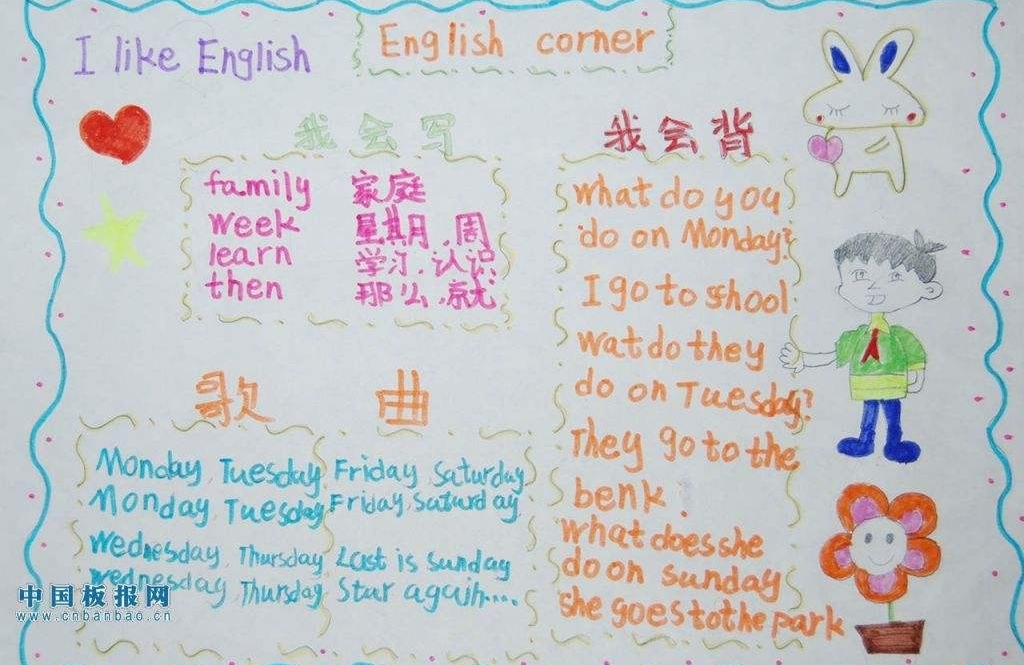 I like English
English corner
我会写
family 家庭
week 星期, 周
learn 学习, 认识
then 那么, 就
我会背
what do you
do on Monday?
I go to shool
wat do they
do on Tuesday?
They go to the
benk.
what does she
do on sunday
she goes to the park
歌 曲
Monday, Tuesday Friday, Saturday
Monday Tuesday Friday, Saturday
Wednesday, Thursday Last is sunday
Wednesday, Thursday Star again....
中国板报网
www.cnbanbao.cn